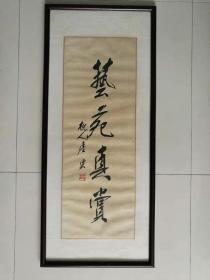 藝苑真賞